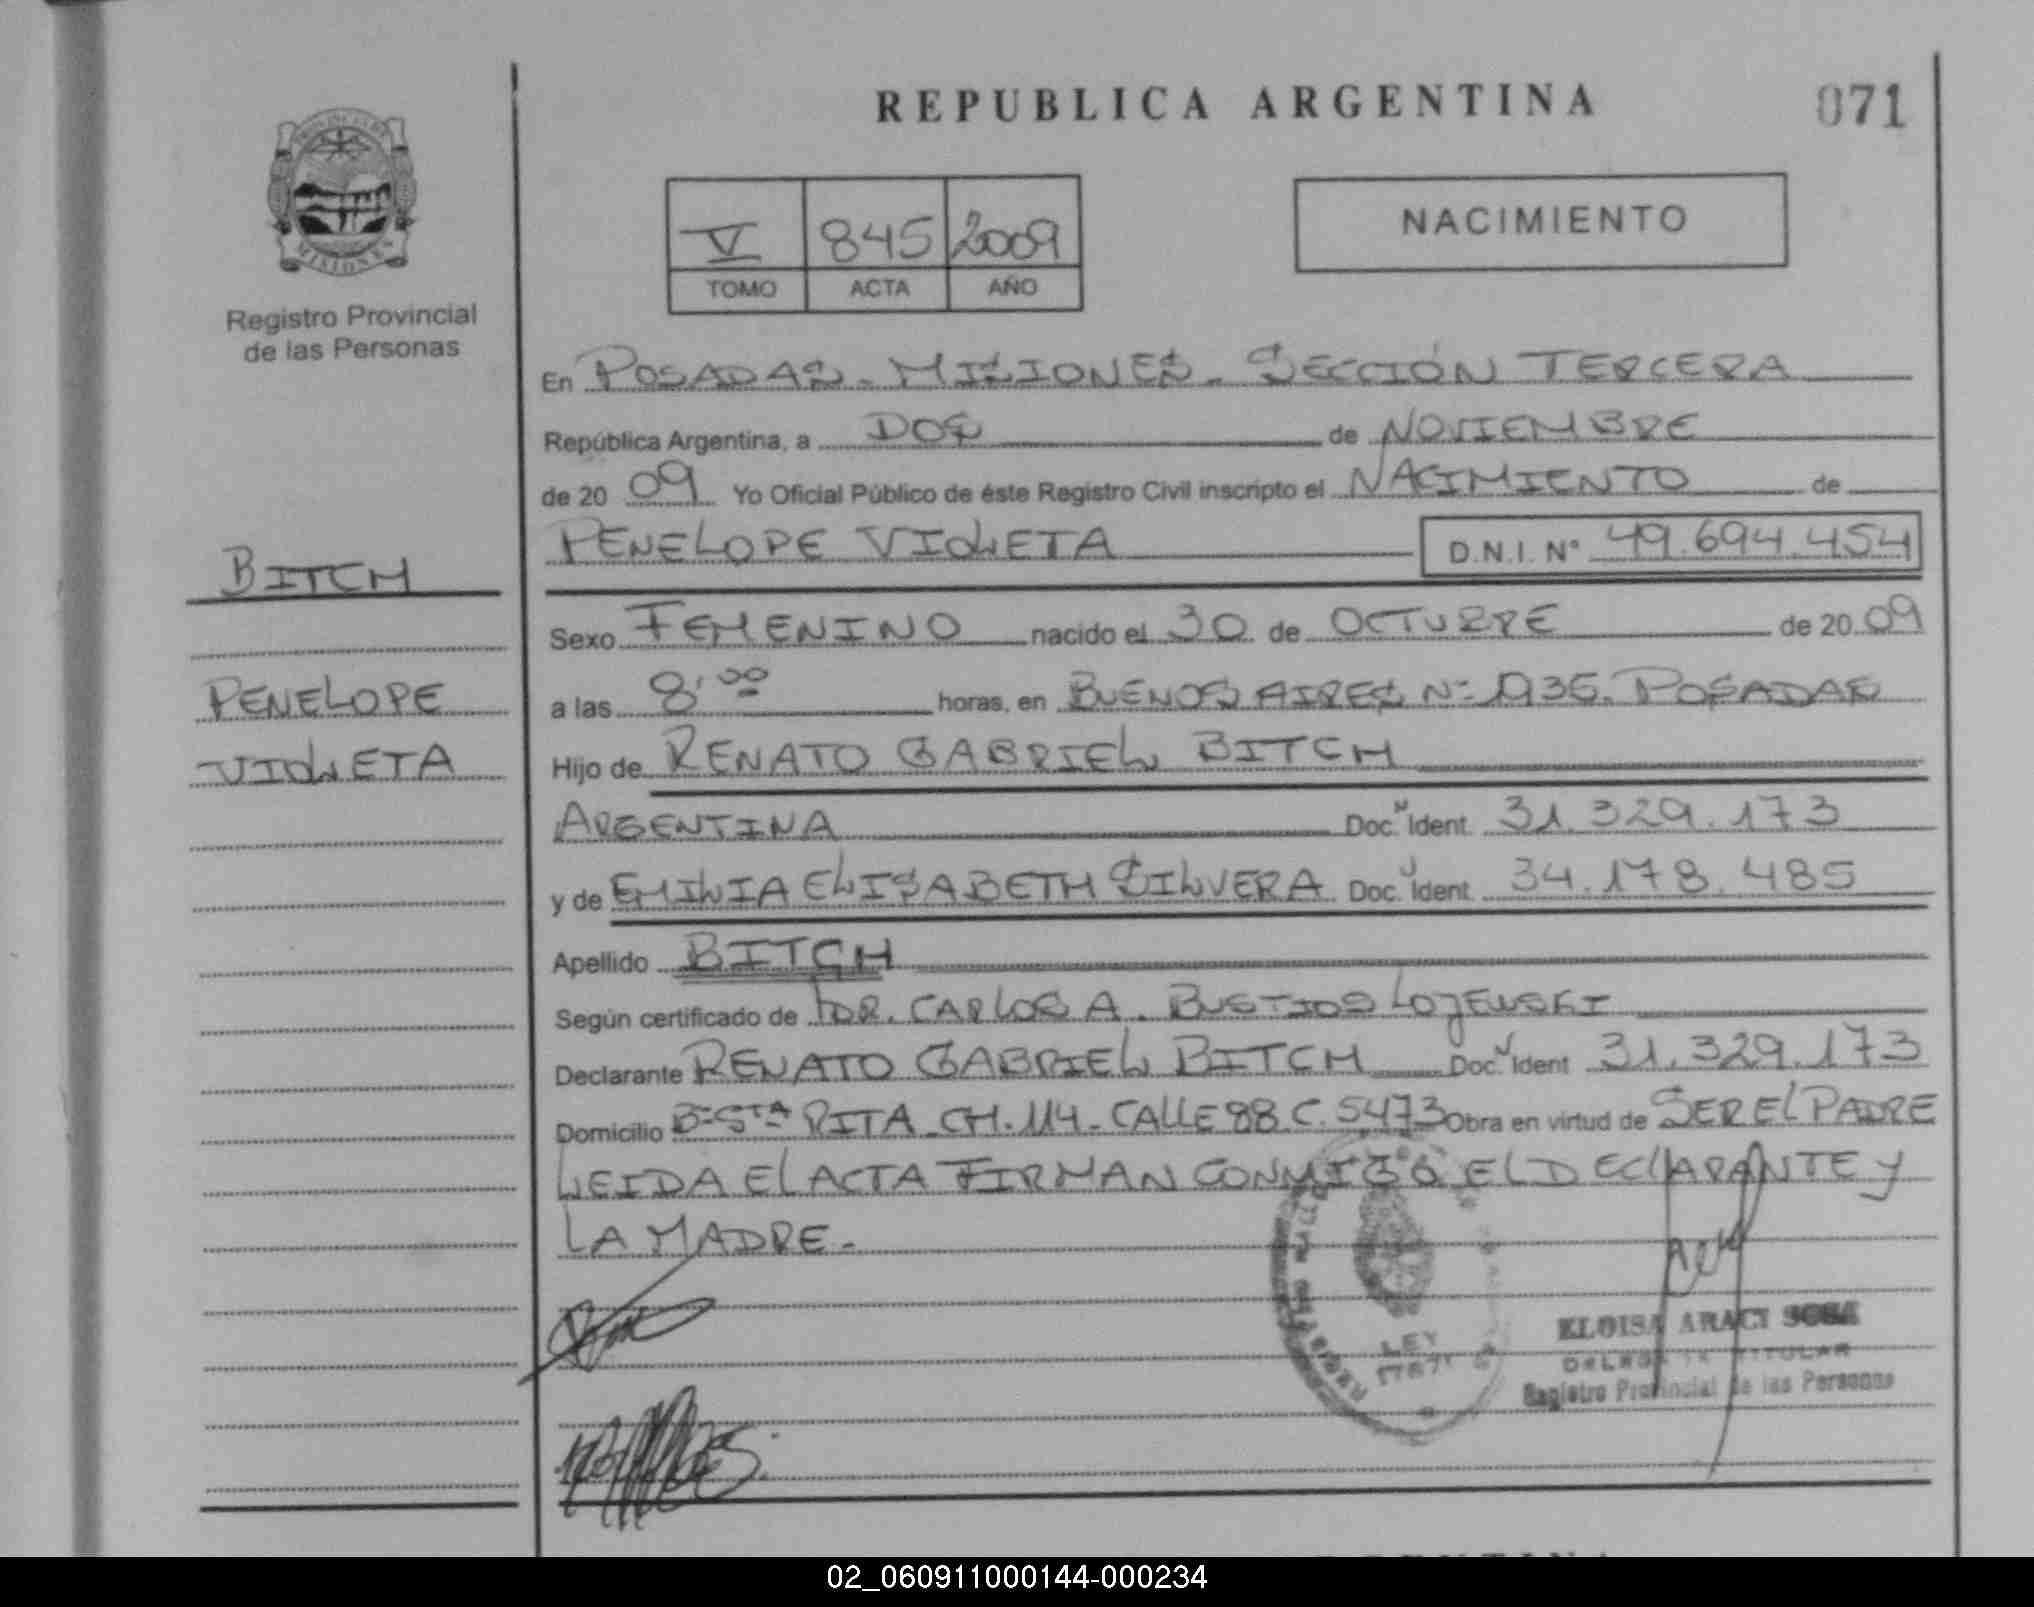 REPUBLICA ARGENTINA
071
PROVINCIA DE
MISIONES
Registro Provincial
de las Personas
V 845 2009
TOMO ACTA AÑO
NACIMIENTO
En POSADAS - MISIONES - SECCIÓN TERCERA
República Argentina, a DOS de NOVIEMBRE
de 20 09 Yo Oficial Público de éste Registro Civil inscripto el NACIMIENTO de
PENELOPE VIOLETA D.N.I. N° 49.694.454
BITCH
PENELOPE
VIOLETA
Sexo FEMENINO nacido el 30 de OCTUBRE de 20 09
a las 8,00 horas, en BUENOS AIRES Nº 1935. POSADAS
Hijo de RENATO GABRIEL BITCH
ARGENTINA Doc. Ident. 31.329.173
y de EMILIA ELISABETH SILVERA Doc. Ident. 34.178.485
Apellido BITCH
Según certificado de DR. CARLOS A. BUSTIOS LOJEWSKI
Declarante RENATO GABRIEL BITCH Doc. Ident. 31.329.173
Domicilio Bº STA RITA - CH. 114 - CALLE 88 C. 5473 Obra en virtud de SER EL PADRE
LEIDA EL ACTA FIRMAN CONMIGO EL DECLARANTE Y
LA MADRE.-
LEY
ELOISA ARACI SOSA
DELEGADA TITULAR
Registro Provincial de las Personas
02_060911000144-000234